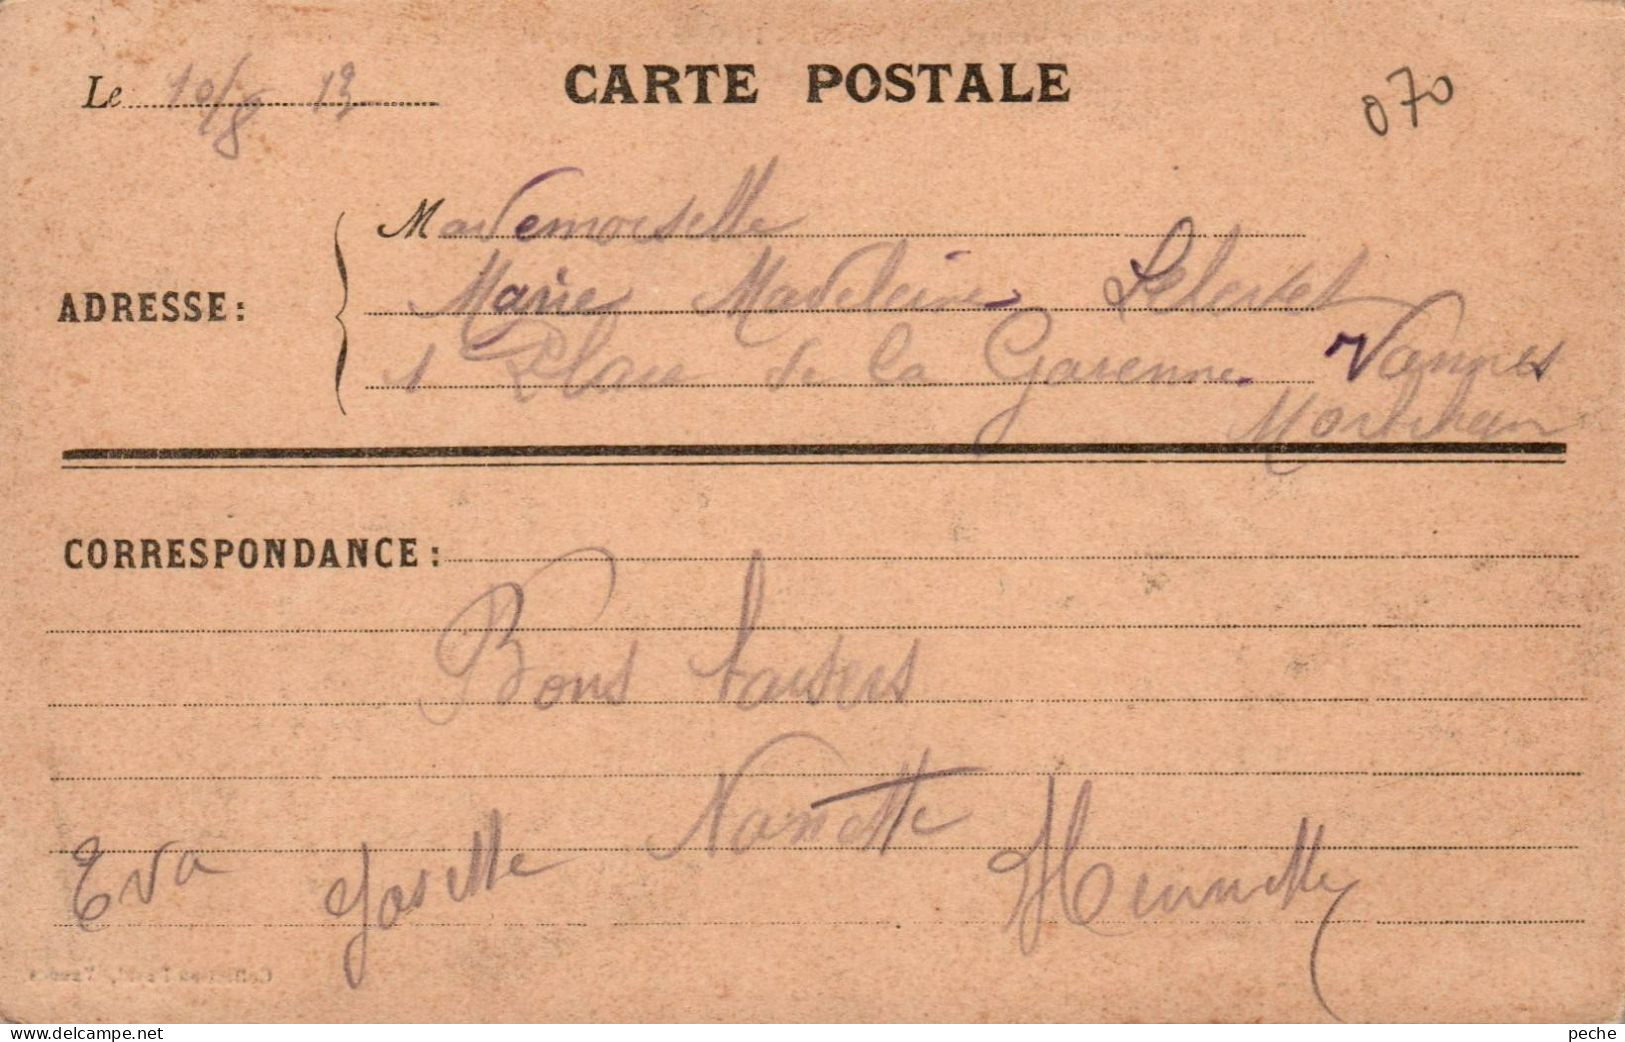 Le 10/8 13
CARTE POSTALE
070
Mademoiselle
ADRESSE:
Marie Madeleine
1 Place de la Garenne Vannes
Morbihan
CORRESPONDANCE:
Bons baisers
Nanette
Eva Josette Hennette
peche